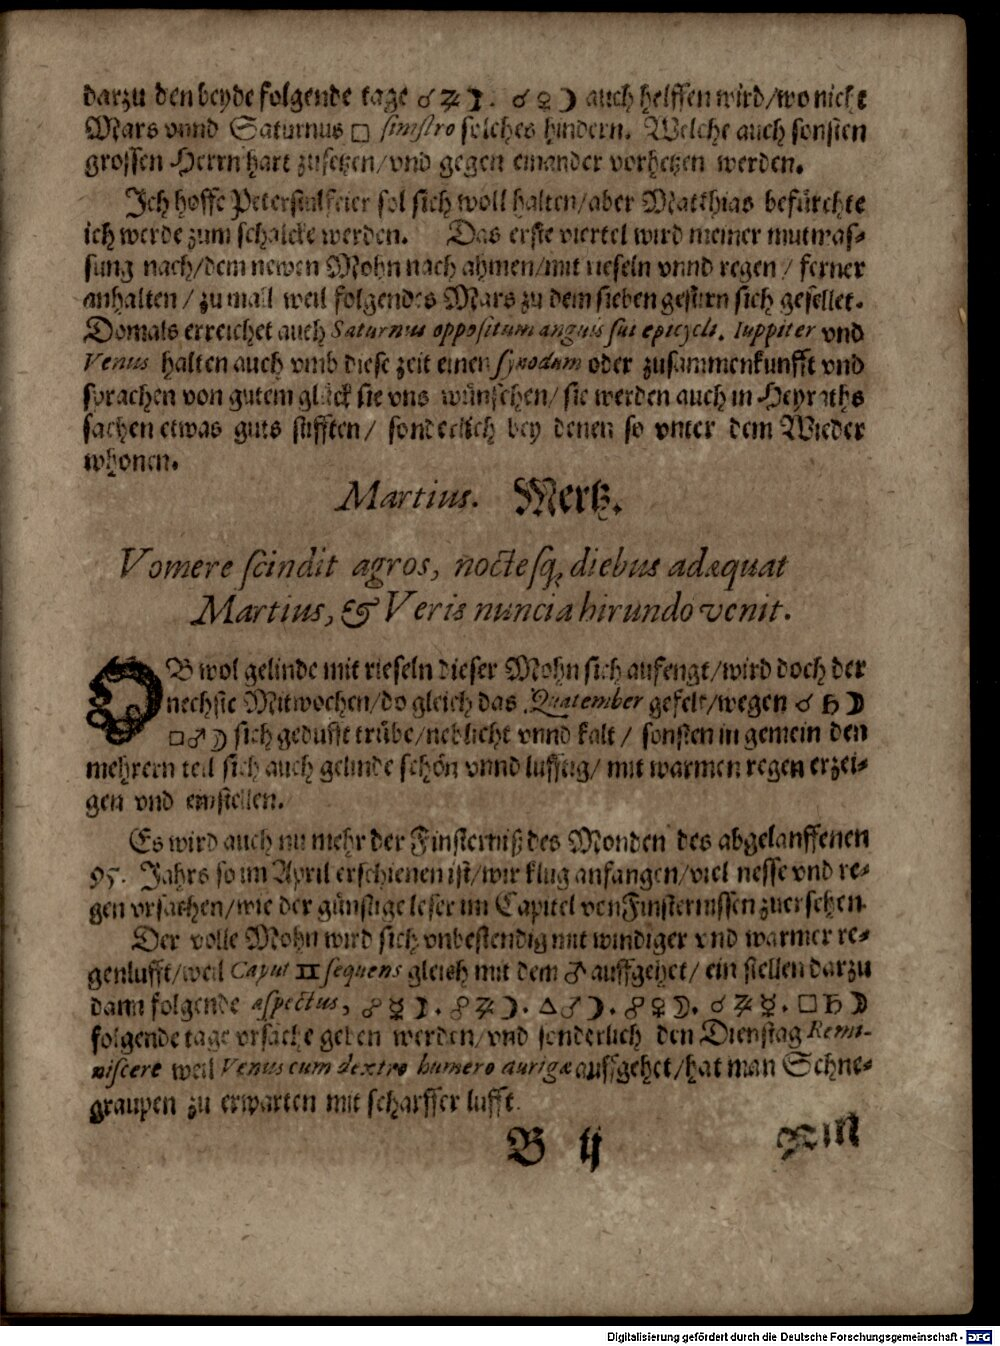 darzu den beyde folgende tage ☌ ♃ ☽. ☌ ♀ ☽ auch helffen wird/wo nicht
Mars vnnd Saturnus □ sinistro solches hindern. Welche auch sonsten
grossen Herrn hart zusetzen/vnd gegen einander vorhetzen werden.
Ich hoffe Peterstulfeier sol sich woll halten/aber Matthias befürchte
ich werde zum schalcke werden. Das erste viertel wird meiner mutmas-
sung nach/dem newen Mohn nach ahmen/mit rieseln vnnd regen / ferner
anhalten / zu mall weil folgendes Mars zu dem sieben gestirn sich gesellet.
Domals erreichet auch Saturnus oppositum anguis sui epicycli. Iuppiter vnd
Venus halten auch vmb diese zeit einen synodum oder zusammenkunfft vnd
sprachen von gutem glück sie vns wünschen/ sie werden auch in Heyraths
sachen etwas guts stifften/ sonderlich bey denen so vnter dem Wieder
whonen.
Martius. Mertz.
Vomere scindit agros, noctesq́; diebus adæquat
Martius, & Veris nuncia hirundo venit.
OB wol gelinde mit rieseln dieser Mohn sich anfengt/wird doch der
nechste Mitwochen/do gleich das Quatember gefelt/wegen ☌ ♄ ☽
□ ♂ ☽ sich gedufft trübe/neblicht vnnd kalt / sonsten in gemein den
mehrern teil sich auch gelinde schön vnnd lufftig/ mit warmen regen erzei-
gen vnd einstellen.
Es wird auch nu mehr der Finsterniß des Monden des abgelauffenen
95. Jahrs so im April erschienen ist/wir klug anfangen/viel nesse vnd re-
gen vrsachen/wie der günstige leser im Capitel von Finsternissen zuersehen.
Der volle Mohn wird sich vnbestendig mit windiger vnd warmer re-
genlufft/weil Caput ♊ sequens gleich mit dem ♂ auffgehet/ ein stellen darzu
dann folgende aspectus, ☍ ☿ ☽. ☍ ♃ ☽. △ ♂ ☽. ☍ ♀ ☽. ☌ ♃ ☿. □ ♄ ☽
folgende tage vrsache geben werden/vnd sonderlich den Dienstag Remi-
niscere weil Venus cum dextro humero aurigæ auffgehet/hat man Schne-
graupen zu erwarten mit scharffer lufft.
B ij
Digitalisierung gefördert durch die Deutsche Forschungsgemeinschaft - DFG